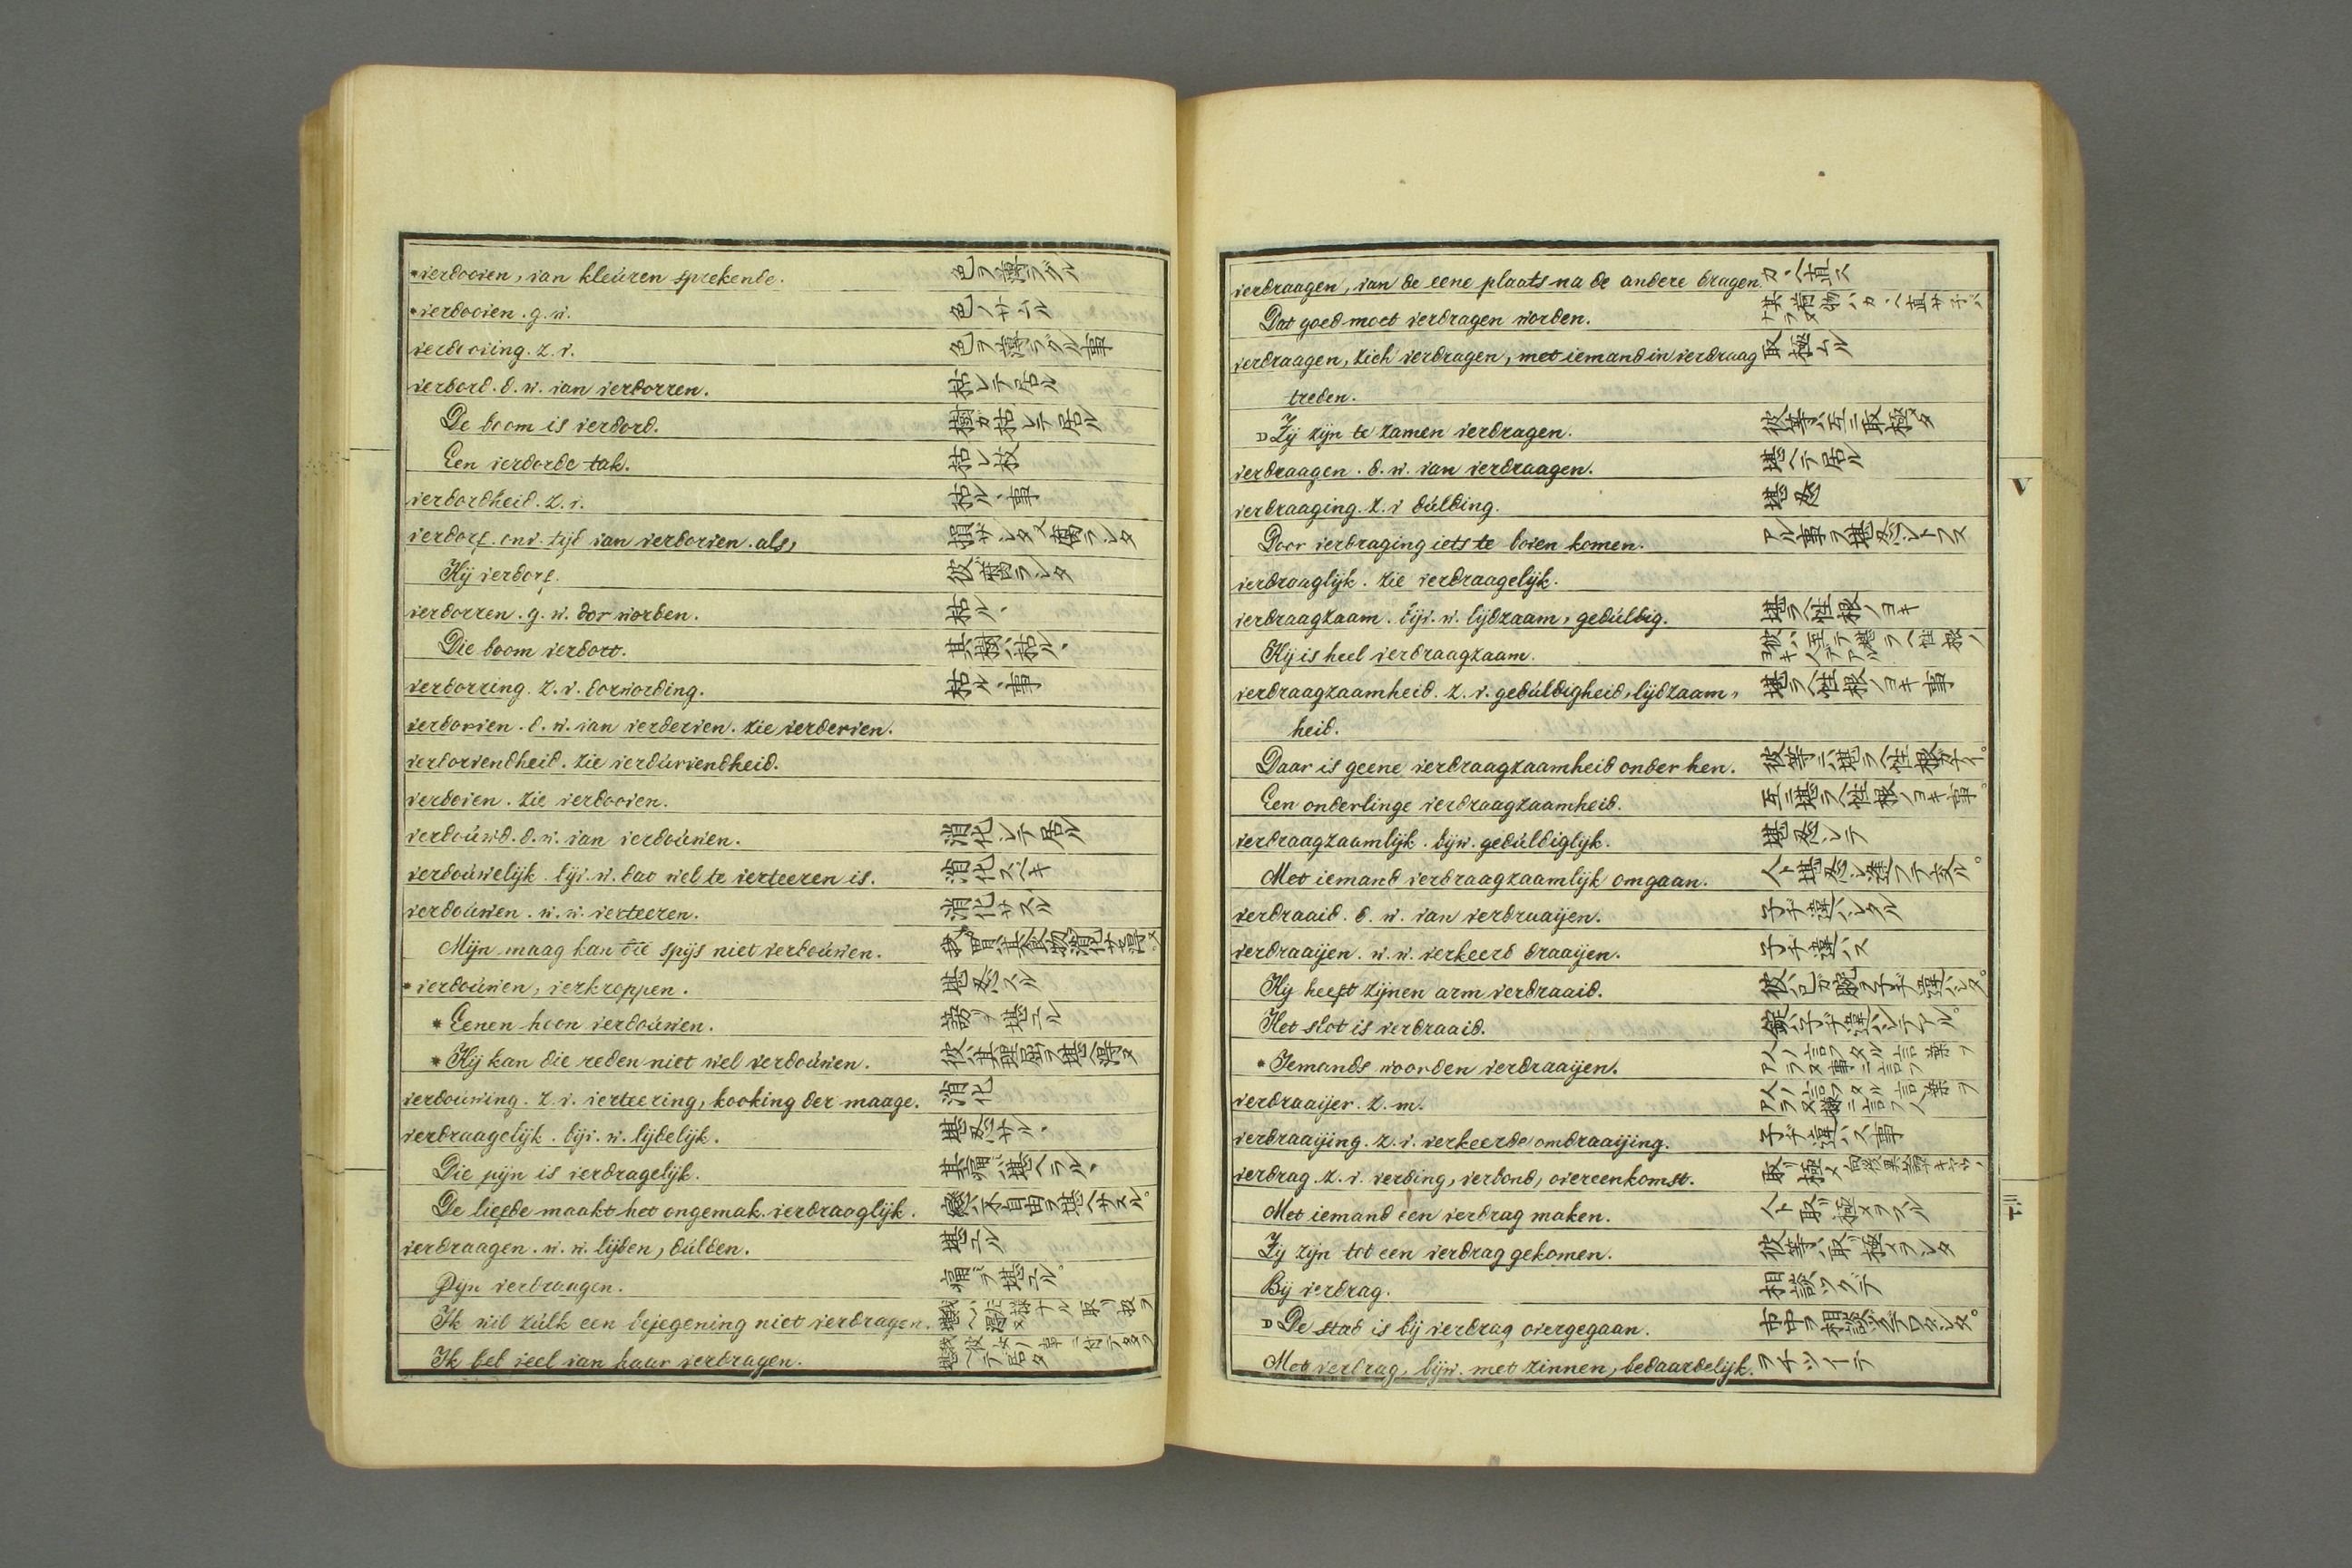 *verdooven, van kleúren sprekende. 色ヲ薄ラグル
*verdooven. g. w. 色ノサムル
verdooving. z. v. 色ヲ薄ラグル事
verdord. d. w. van verdorren. 枯レテ居ル
De boom is verdord. 樹ガ枯レテ居ル
Een verdorde tak. 枯レ枝
verdordheid. z. v. 枯ル丶事
verdorf. onv. tijd van verdorven. als,
Hij verdorf.
verdorren. g. w. dor worden. 枯ル丶
Die boom verdort. 其樹ハ枯ル丶
verdorring. z. v. dorwording. 枯ル丶事
verdorven. d. w. van verderven. zie verderven.
verdorvendheid. zie verdúrvendheid.
verdoven. zie verdooven.
verdoúwd. d. w. van verdoúwen. 消化シテ居ル
verdoúwelijk. bijv. w. dat wel te verteeren is. 消化スベキ
verdoúwen. w. w. verteeren. 消化サスル
Mijn maag kan die spijs niet verdoúwen.
*verdoúwen, verkroppen. 堪忍スル
*Eenen hoon verdoúwen. 堪エル
*Hij kan die reden niet wel verdoúwen. 彼ハ其理屈ヲ堪ヘ得ヌ
verdoúwing. z. v. verteering, kooking der maage. 消化
verdraagelijk. bijv. w. lijdelijk. 堪忍サル丶
Die pijn is verdragelijk. 其痛ハ堪ヘラル丶
De liefde maakt het ongemak verdraaglijk. 不自由ヲ堪ヘサスル。
verdraagen. w. w. lijden, dúlden. 堪エル
Pijn verdraagen. 痛ヲ堪エル。
Ik wil zúlk een bejegening niet verdragen.
Ik heb veel van haar verdragen.
verdraagen, van de eene plaats na de andere dragen. カヘ直ス
Dat goed moet verdragen worden.
verdraagen, zich verdragen, met iemand in verdraag 取極ムル
treden.
Zij zijn te zamen verdragen. 彼等ハ互ニ取極メタ
verdraagen. d. w. van verdraagen. 堪ヘテ居ル
verdraaging. z. v dúlding. 堪忍
Door verdraging iets te boven komen.
verdraaglijk. zie verdraagelijk.
verdraagzaam. bijv. w. lijdzaam, gedúldig. 堪ラヘ性根ノヨキ
Hij is heel verdraagzaam. 彼ハ至テ堪ラヘ性根ノヨキ人デアル
verdraagzaamheid. z. v. gedúldigheid, lijdzaam, 堪ラヘ性根ノヨキ事
heid.
Daar is geene verdraagzaamheid onder hen. 彼等ニハ堪ラヘ性根ガナイ。
Een onderlinge verdraagzaamheid. 互ニ堪ラヘ性根ノヨキ事。
verdraagzaamlijk. bijw. gedúldiglijk. 堪忍シテ
Met iemand verdraagzaamlijk omgaan.
verdraaid. d. w. van verdraaijen. 子ヂ違ハシタル
verdraaijen. w. w. verkeerd draaijen. 子ヂ違ハス
Hij heeft zijnen arm verdraaid. 彼ハ己ガ腕ヲ子ヂ違ハシタ。
Het slot is verdraaid. 錠ハ子ヂ違ハシテアル。
*Iemands woorden verdraaijen. 人ノ言フタル言葉ヲアラヌ事ニ言フ
verdraaijer. z. m. 人ノ言フタル言葉ヲアラヌ様ニ言フ人
verdraaijing. z. v. verkeerde omdraaijing. 子ヂ違ハス事
verdrag. z. v. verding, verbond, overeenkomst. 取リ極メ
Met iemand een verdrag maken. 人ト取リ極メヲスル
Zij zijn tot een verdrag gekomen. 彼等ハ取リ極メヲシタ
Bij verdrag. 相談ヅクデ
De stad is bij verdrag overgegaan.
Met verdrag, bijw. met zinnen, bedaardelijk. ヲチツイテ
V